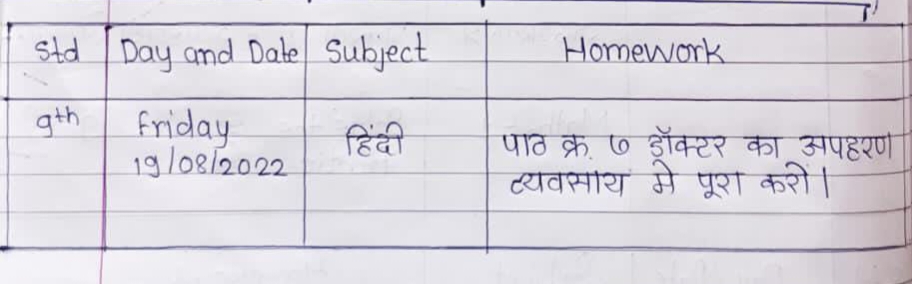 Std Day and Date Subject Homework
9th Friday हिंदी पाठ क्र. ७ डॉक्टर का अपहरण
19/08/2022 व्यवसाय मे पूरा करों।